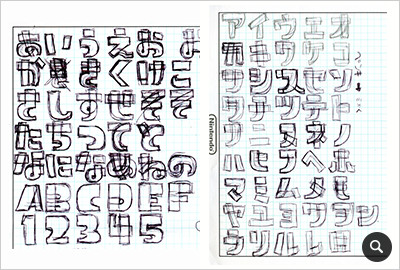 あいうえお
かきくけこ
さしすせそ
たちつてと
なにぬねの
ABCDEF
12345
(Nintendo)
アイウエオ
カキクケコ
サシスセソ
タチツテト
ナニヌネノ
ハヒフヘホ
マミムメモ
ヤユヨワヲン
ラリルレロ